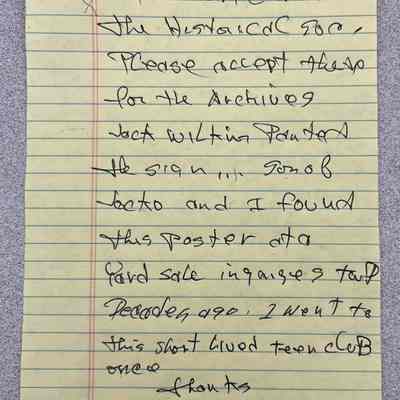 the Historical Soc,
Please accept these
for the Archives
Jack Wilkins Painted
the sign ... son of
and I found
this poster at a
Yard sale in
Decades ago. I went to
this short lived teen cluB
once
thanks